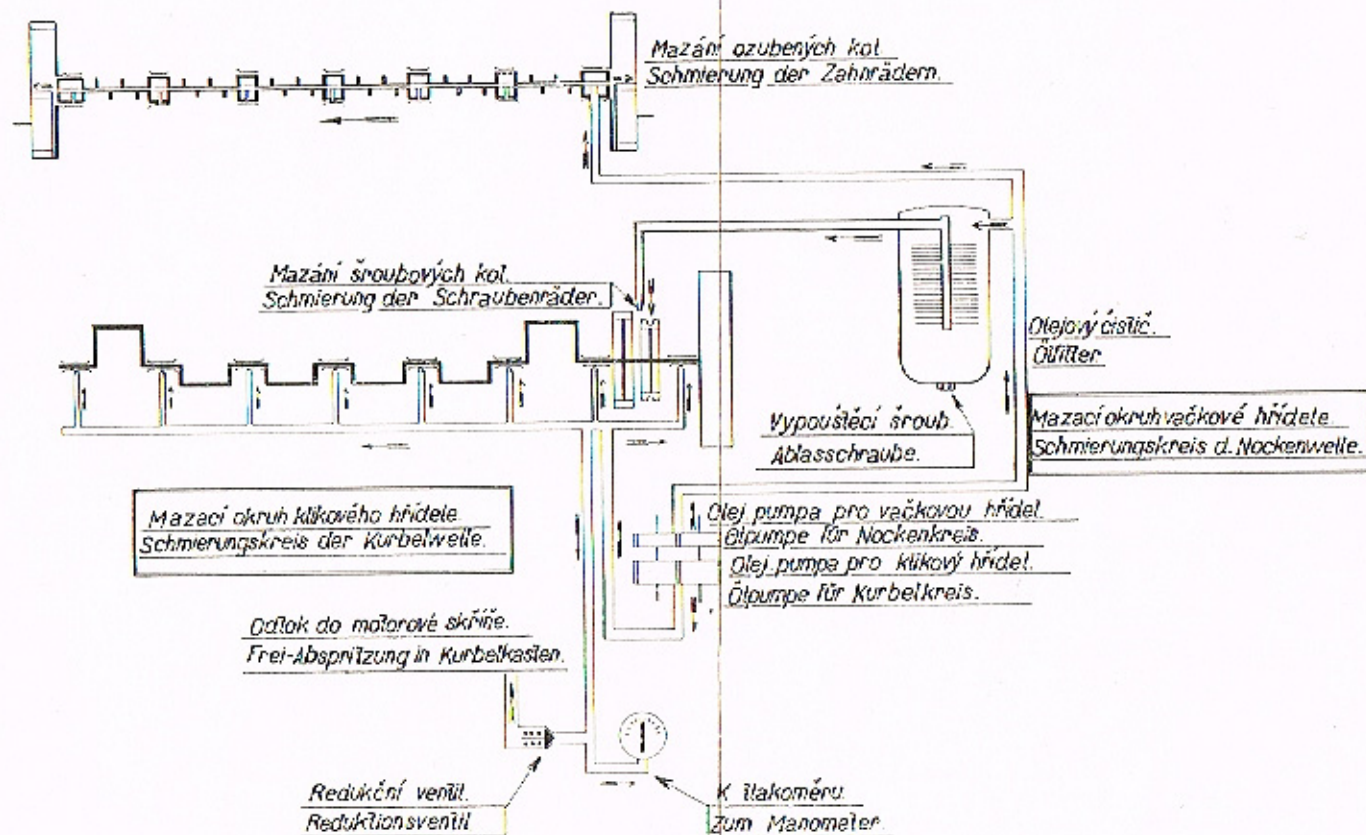 Mazání ozubených kol.
Schmierung der Zahnrädern.
Mazání šroubových kol.
Schmierung der Schraubenräder.
Olejový čistič.
Ölfilter
Vypouštěcí šroub.
Ablasschraube.
Mazací okruh vačkové hřídele.
Schmierungskreis d. Nockenwelle.
Mazací okruh klikového hřídele
Schmierungskreis der Kurbelwelle.
Olej pumpa pro vačkovou hřídel.
Ölpumpe für Nockenkreis.
Olej. pumpa pro klikový hřídel.
Ölpumpe für Kurbelkreis.
Odtok do motorové skříňe.
Frei-Abspritzung in Kurbelkasten.
Redukční ventil.
Reduktionsventil
K tlakoměru.
Zum Manometer.